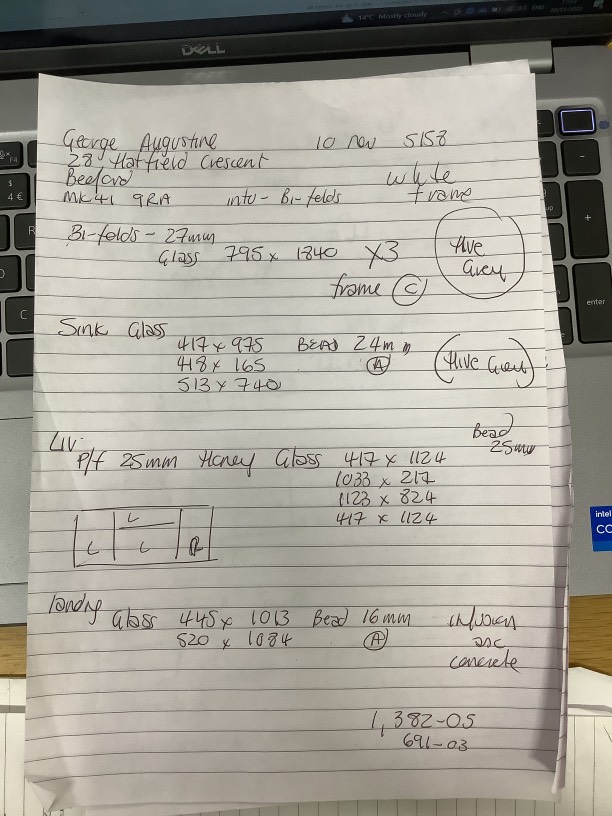 14°C Mostly cloudy
DELL
George Augustine 10 Nov 5158
28, Hatfield Crescent
Bedford white
MK41 9RA into - Bi-folds frame
Bi-folds - 27mm Hive
Glass 795 x 1840 x3 Grey
frame C
Sink Glass
417 x 975 BEAD 24mm
418 x 165 A (Hive Grey)
513 x 740
Liv: Bead
P/f 25mm Honey Glass 417 x 1124 25mm
1033 x 217
1123 x 824
417 x 1124
L
L L R
landing
Glass 445 x 1013 Bead 16mm infusion
520 x 1084 A asc
concrete
1,382-05
691-03
enter
intel